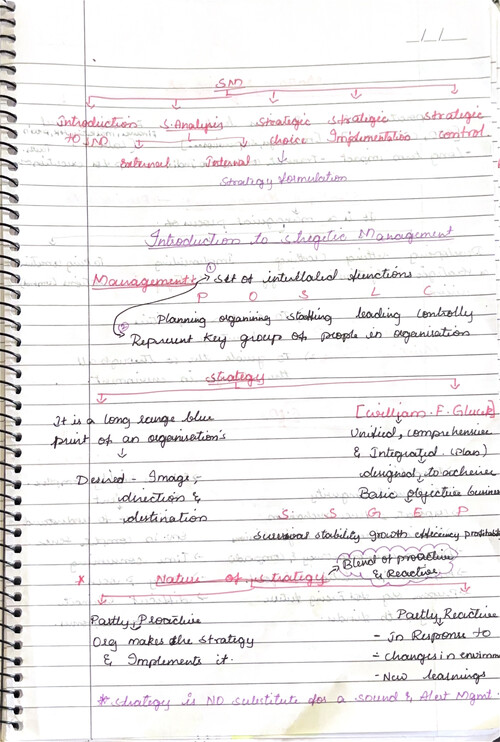 __/__/__
SM
Introduction S.Analysis strategic strategic strategic
to SM choice Implementation control
External Internal
Strategy formulation
Introduction to stregetic Management
Management: ① set of interllated functions
P O S L C
Planning organising staffing leading controlly
② Represent key group of people in organisation
strategy
It is a long range blue [William.F.Glueck]
print of an organisation's Unified, comprehensive
& Integrated (plan)
Desired - Image, designed to acheive
direction & Basic objective
destination S S G E P
survival stability growth efficiency
Blend of proactive
* Nature of strategy & Reactive
Partly Proactive Partly Reactive
Org makes the strategy - In Response to
& Implements it. - changes in
- New learnings
* strategy is NO substitute for a sound & Alert Mgmt.